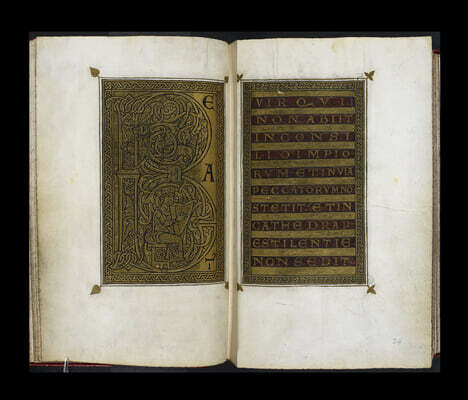 B
E
A
T
VIR QVI
NON ABIIT
IN CONSI
LIO IMPIO
RVM ET IN VIA
PECCATORVM NO
STETIT ET IN
CATHEDRA P
ESTILENTIE
NON SEDIT.